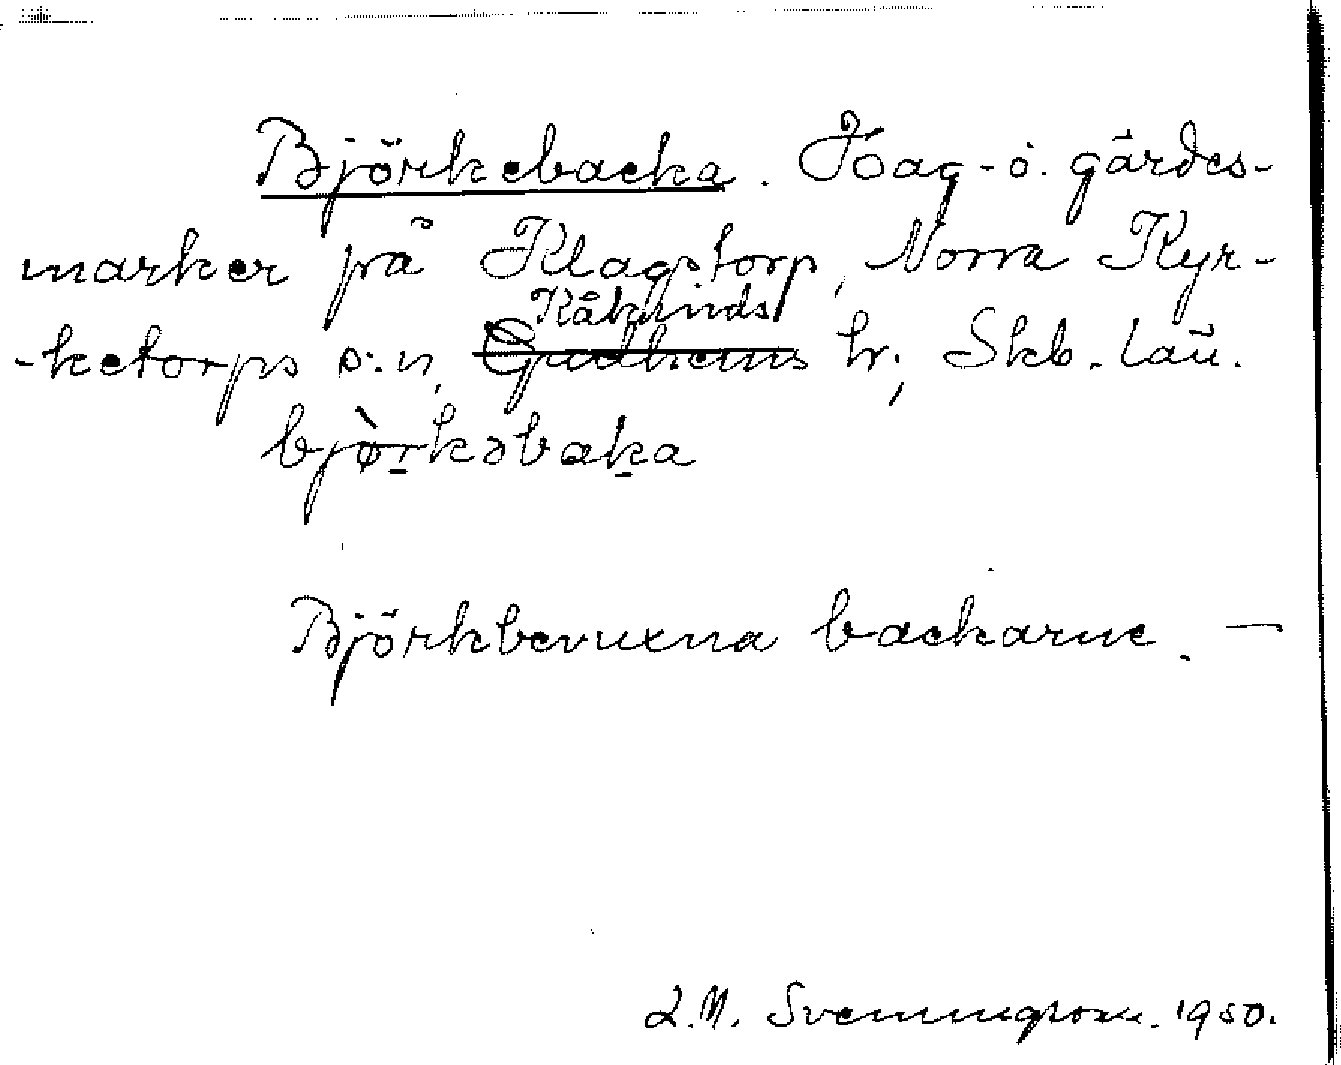 Björkebacka. Hag- o. gärdes-
marker på Klagstorp, Norra Kyr-
-ketorps s:n, Kåkinds
Gudhems hr; Skb. län.
bjò̱rkəbaḵa
Björkbevuxna backarne. —
L.M. Svenungsson. 1950.